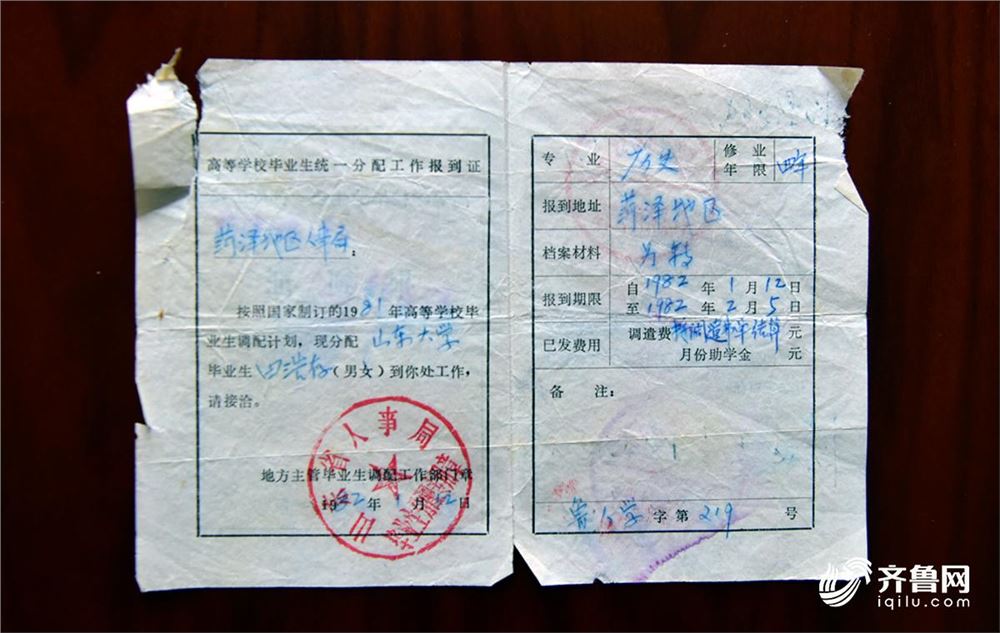 高等学校毕业生统一分配工作报到证
菏泽地区人事局：
按照国家制订的1981年高等学校毕
业生调配计划，现分配 山东大学
毕业生 田浩存（男女）到你处工作，
请接洽。
山东省人事局
地方主管毕业生调配工作部门章
1982年1月12日
专业 历史 修业年限 四年
报到地址 菏泽地区
档案材料 另转
报到期限 自1982年1月12日
至1982年2月5日
已发费用 调遣费 元
月份助学金 元
备注：
字第219号
齐鲁网
iqilu.com